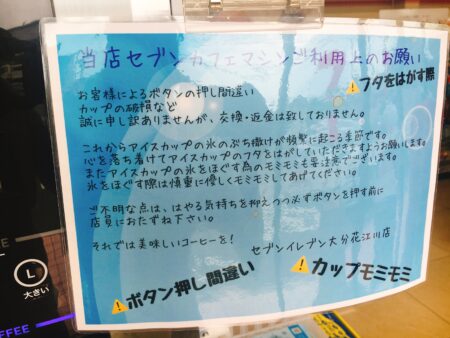 当店セブンカフェマシンご利用上のお願い
お客様によるボタンの押し間違い
カップの破損など
誠に申し訳ありませんが、交換・返金は致しておりません。
⚠フタをはがす際
これからアイスカップの氷のぶち撒けが頻繁に起こる季節です。
心を落ち着けてアイスカップのフタをはがしていただきますようお願いします。
またアイスカップの氷をほぐす為のモミモミも要注意でございます。
氷をほぐす際は慎重に優しくモミモミしてあげてください。
ご不明な点は、はやる気持ちを抑えつつ必ずボタンを押す前に
店員におたずね下さい。
それでは美味しいコーヒーを!
セブンイレブン大分花江川店
⚠ボタン押し間違い
⚠カップモミモミ
L
大きい
FFEE